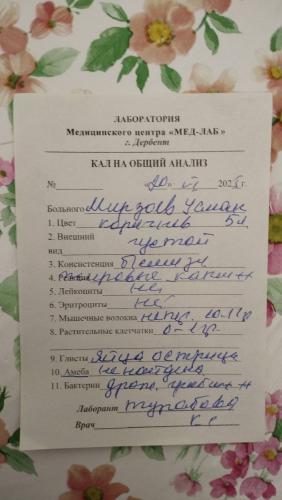 ЛАБОРАТОРИЯ
Медицинского центра «МЕД-ЛАБ»
г. Дербент
КАЛ НА ОБЩИЙ АНАЛИЗ
№ «20» VI 202 г.
Больного Мирзоев Усман
1. Цвет коричнев 5л
2. Внешний
вид густой
3. Консистенция
4. Реакция жировые капли ++
5. Лейкоциты нет
6. Эритроциты нет
7. Мышечные волокна непер. 10-12
8. Растительные клетчатки 0-1
9. Глисты яйца острица
10. Амеба не найдена
11. Бактерии дрож. грибки ++
Лаборант
Врач